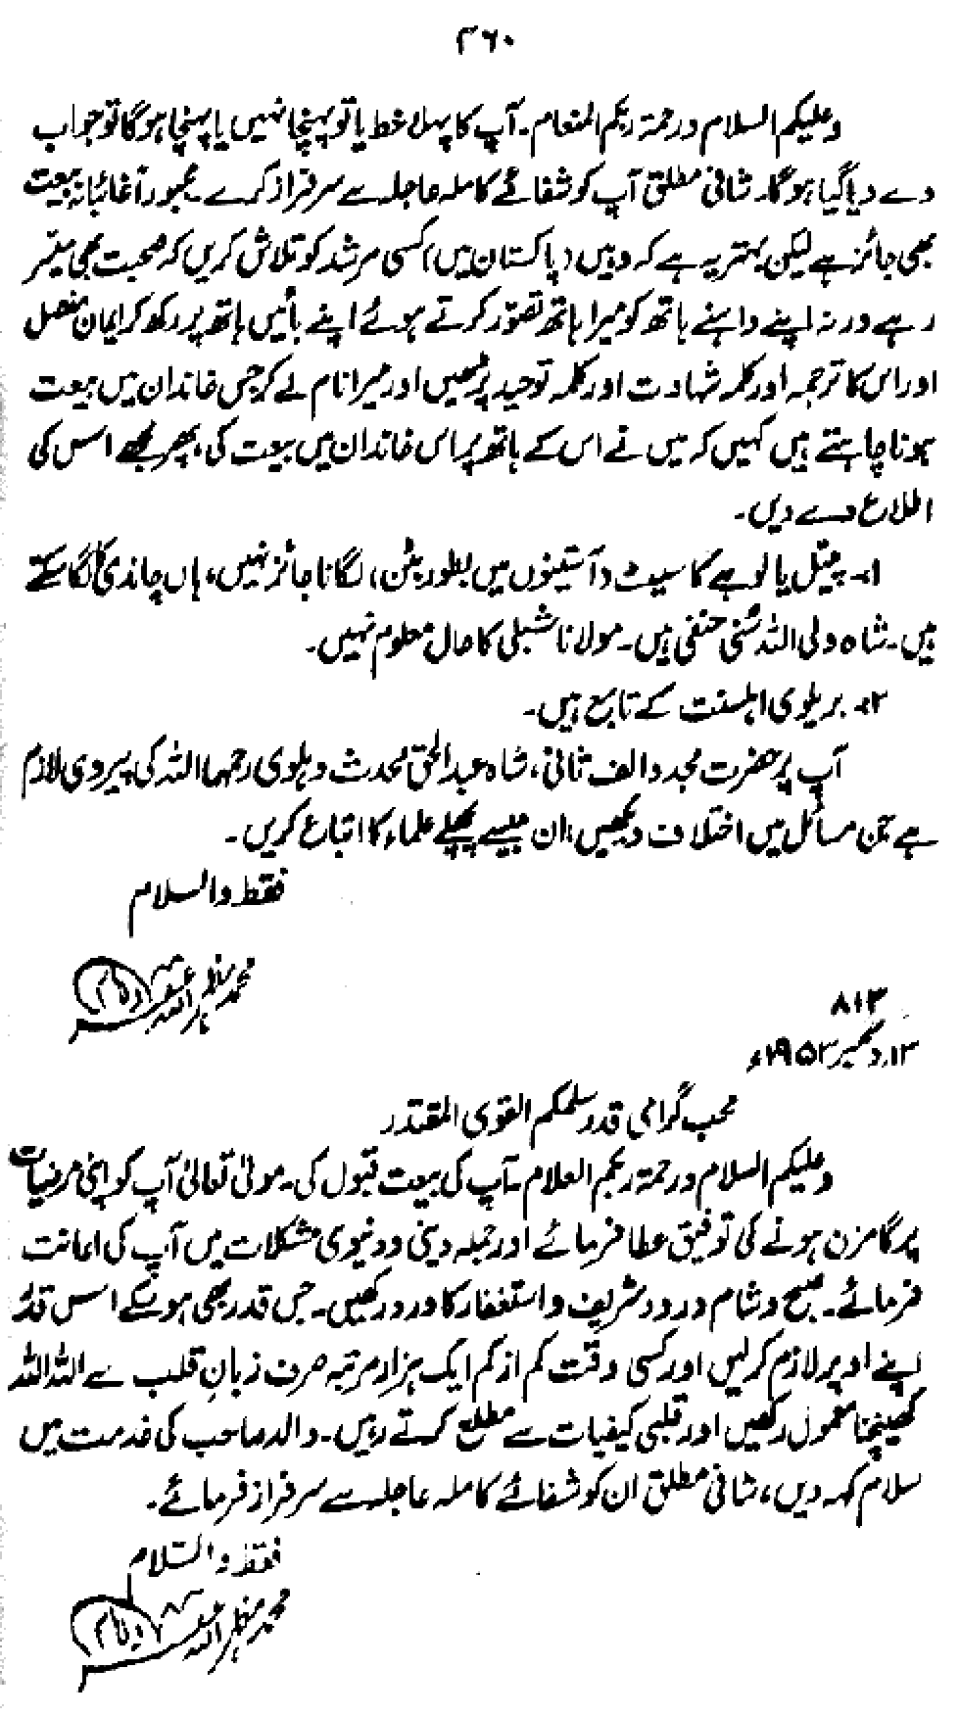 ۳۶۰
وعلیکم السلام ورحمۃ ربکم المنعام۔ آپ کا پہلا خط یا تو پہنچا نہیں یا پہنچا ہوگا تو جواب
دے دیا گیا ہوگا۔ شافی مطلق آپ کو شفائے کاملہ عاجلہ سے سرفراز کرے۔ مجبوراً غائبانہ بیعت
بھی جائز ہے لیکن بہتر یہ ہے کہ وہیں (پاکستان میں) کسی مرشد کو تلاش کریں کہ صحبت بھی میسر
رہے ورنہ اپنے داہنے ہاتھ کو میرا ہاتھ تصوّر کرتے ہوئے اپنے بائیں ہاتھ پر رکھ کر ایمان مفصل
اور اس کا ترجمہ اور کلمہ شہادت اور کلمہ توحید پڑھیں اور میرا نام لے کر جس خاندان میں بیعت
ہونا چاہتے ہیں کہیں کہ میں نے اس کے ہاتھ پر اس خاندان میں بیعت کی، پھر مجھے اس کی
اطلاع دے دیں۔
۱۔ پیتل یا لوہے کا سیٹ (آستینوں میں بطور بٹن) لگانا جائز نہیں، ہاں چاندی کا لگا سکتے
ہیں۔ شاہ ولی اللہ سُنّی حنفی ہیں۔ مولانا شبلی کا حال معلوم نہیں۔
۲۔ بریلوی اہلسنت کے تابع ہیں۔
آپ پر حضرت مجدد الف ثانی، شاہ عبدالحق محدث دہلوی رحمہما اللہ کی پیروی لازم
ہے جن مسائل میں اختلاف دیکھیں، ان جیسے پچھلے علماء کا اتباع کریں۔
فقط والسلام
محمد مظہر اللہ
۸۱۳
۱۳؍ دسمبر ۱۹۵۲ء
محب گرامی قدر سلمکم القوی المقتدر
وعلیکم السلام ورحمۃ ربکم العلام۔ آپ کی بیعت قبول کی۔ مولیٰ تعالیٰ آپ کو اپنی مرضیات
پر گامزن ہونے کی توفیق عطا فرمائے اور جملہ دینی و دنیوی مشکلات میں آپ کی اعانت
فرمائے۔ صبح و شام درود شریف و استغفار کا ورد رکھیں۔ جس قدر بھی ہو سکے اس قدر
اپنے اوپر لازم کر لیں اور کسی وقت کم از کم ایک ہزار مرتبہ صرف زبانِ قلب سے اللہ اللہ
کھینچنا معمول رکھیں اور قلبی کیفیات سے مطلع کرتے رہیں۔ والد صاحب کی خدمت میں
سلام کہہ دیں، شافی مطلق ان کو شفائے کاملہ عاجلہ سے سرفراز فرمائے۔
فقط والسّلام
محمد مظہر اللہ